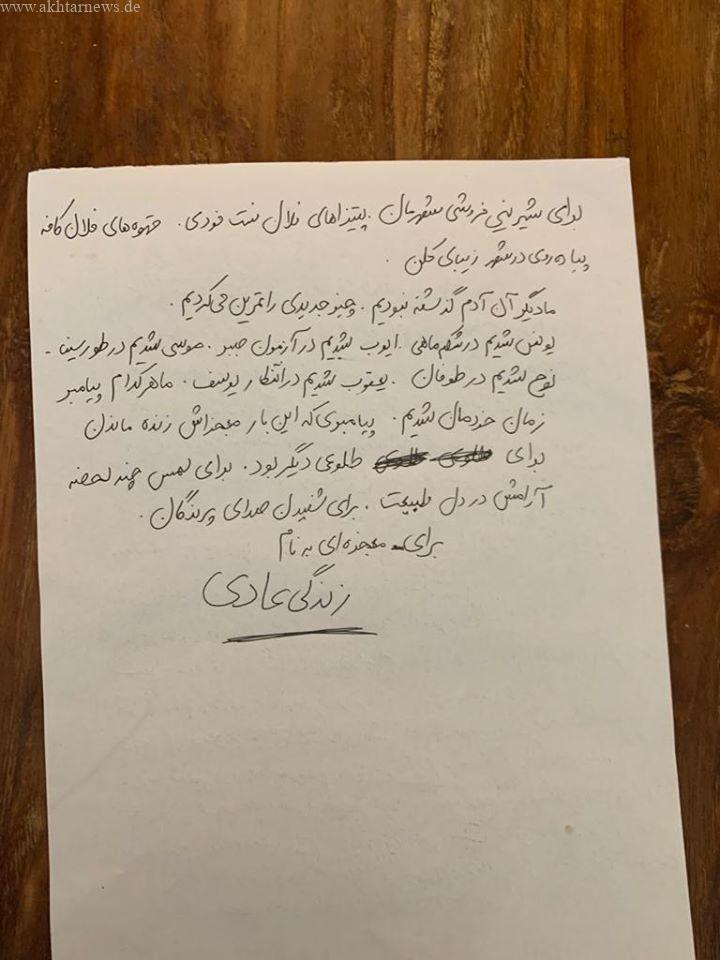 www.akhtarnews.de
برای شیرینی فروشی شهرمان. پیتزاهای فلان فست فودی. قهوه های فلان کافه
پیاده روی در شهر زیبای کلن.
ما دیگر آن آدم گذشته نبودیم. چیز جدیدی را تمرین می کردیم.
یونس شدیم در شکم ماهی. ایوب شدیم در آزمون صبر. موسی شدیم در طور سینا.
نوح شدیم در طوفان. یعقوب شدیم در انتظار یوسف. ما هر کدام پیامبر
زمان خودمان شدیم. پیامبری که این بار معجزاش زنده ماندن
برای طلوعی دیگر بود. برای لمس چند لحضه
آرامش در دل طبیعت. برای شنیدن صدای پرندگان.
برای معجزه ای به نام
زندگی عادی